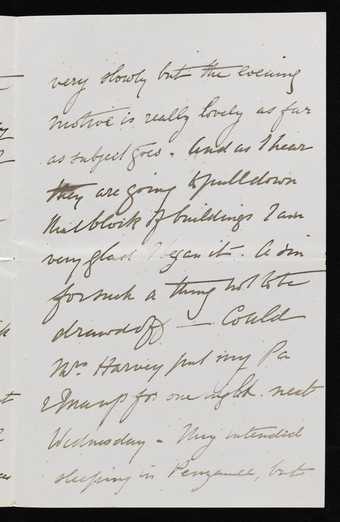 very slowly but the evening
motive is really lovely as far
as subject goes. And as I hear
they are going to pull down
that block of buildings I am
very glad I began it. A sin
for such a thing not to be
drawd off — Could
Mrs Harvey put my Pa
& Mamp for one night next
Wednesday. They intended
sleeping in Penzance, but